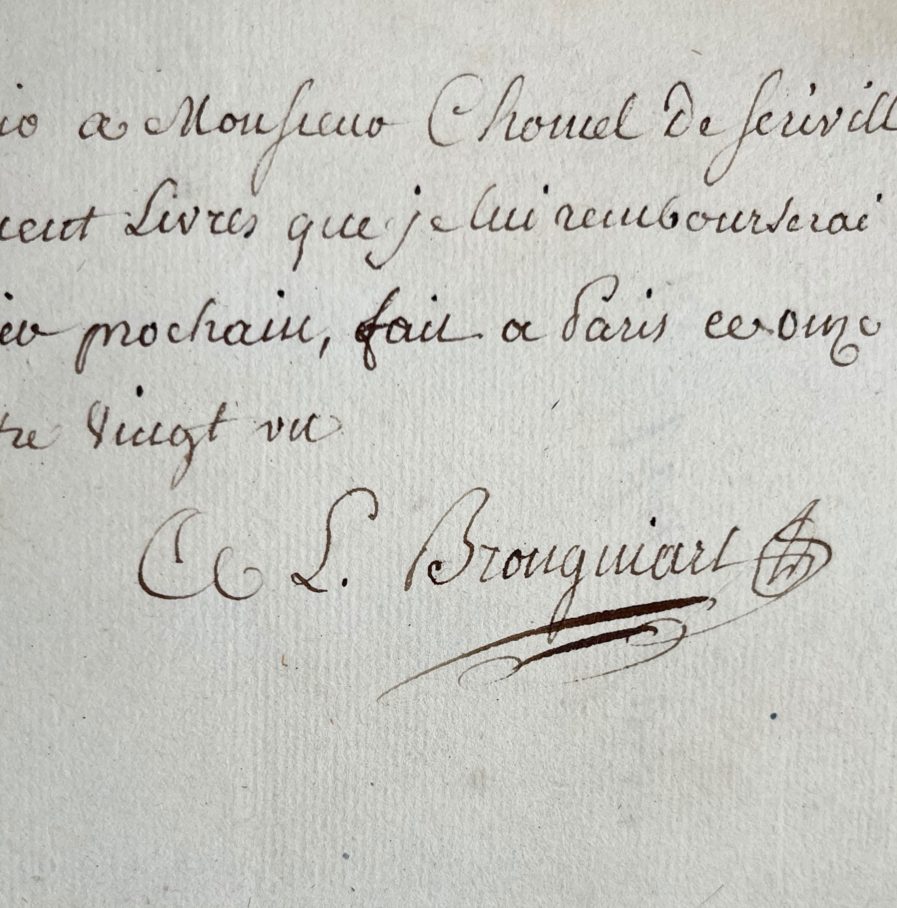 io a Monsieur Chomel De Serivill
cent Livres que je lui rembourserai
ier prochain, fait a Paris ce onze
tre Vingt un
L. Brongniart